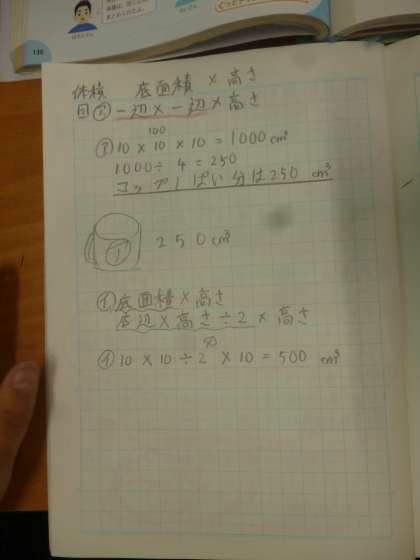 130
体積 底面積 × 高さ
㋐ 一辺 × 一辺 × 高さ
100
㋐ 10 × 10 × 10 = 1000 cm³
1000 ÷ 4 = 250
コップ1ぱい分は250 cm³
250 cm³
㋑ 底面積 × 高さ
底辺 × 高さ ÷ 2 × 高さ
50
㋑ 10 × 10 ÷ 2 × 10 = 500 cm³